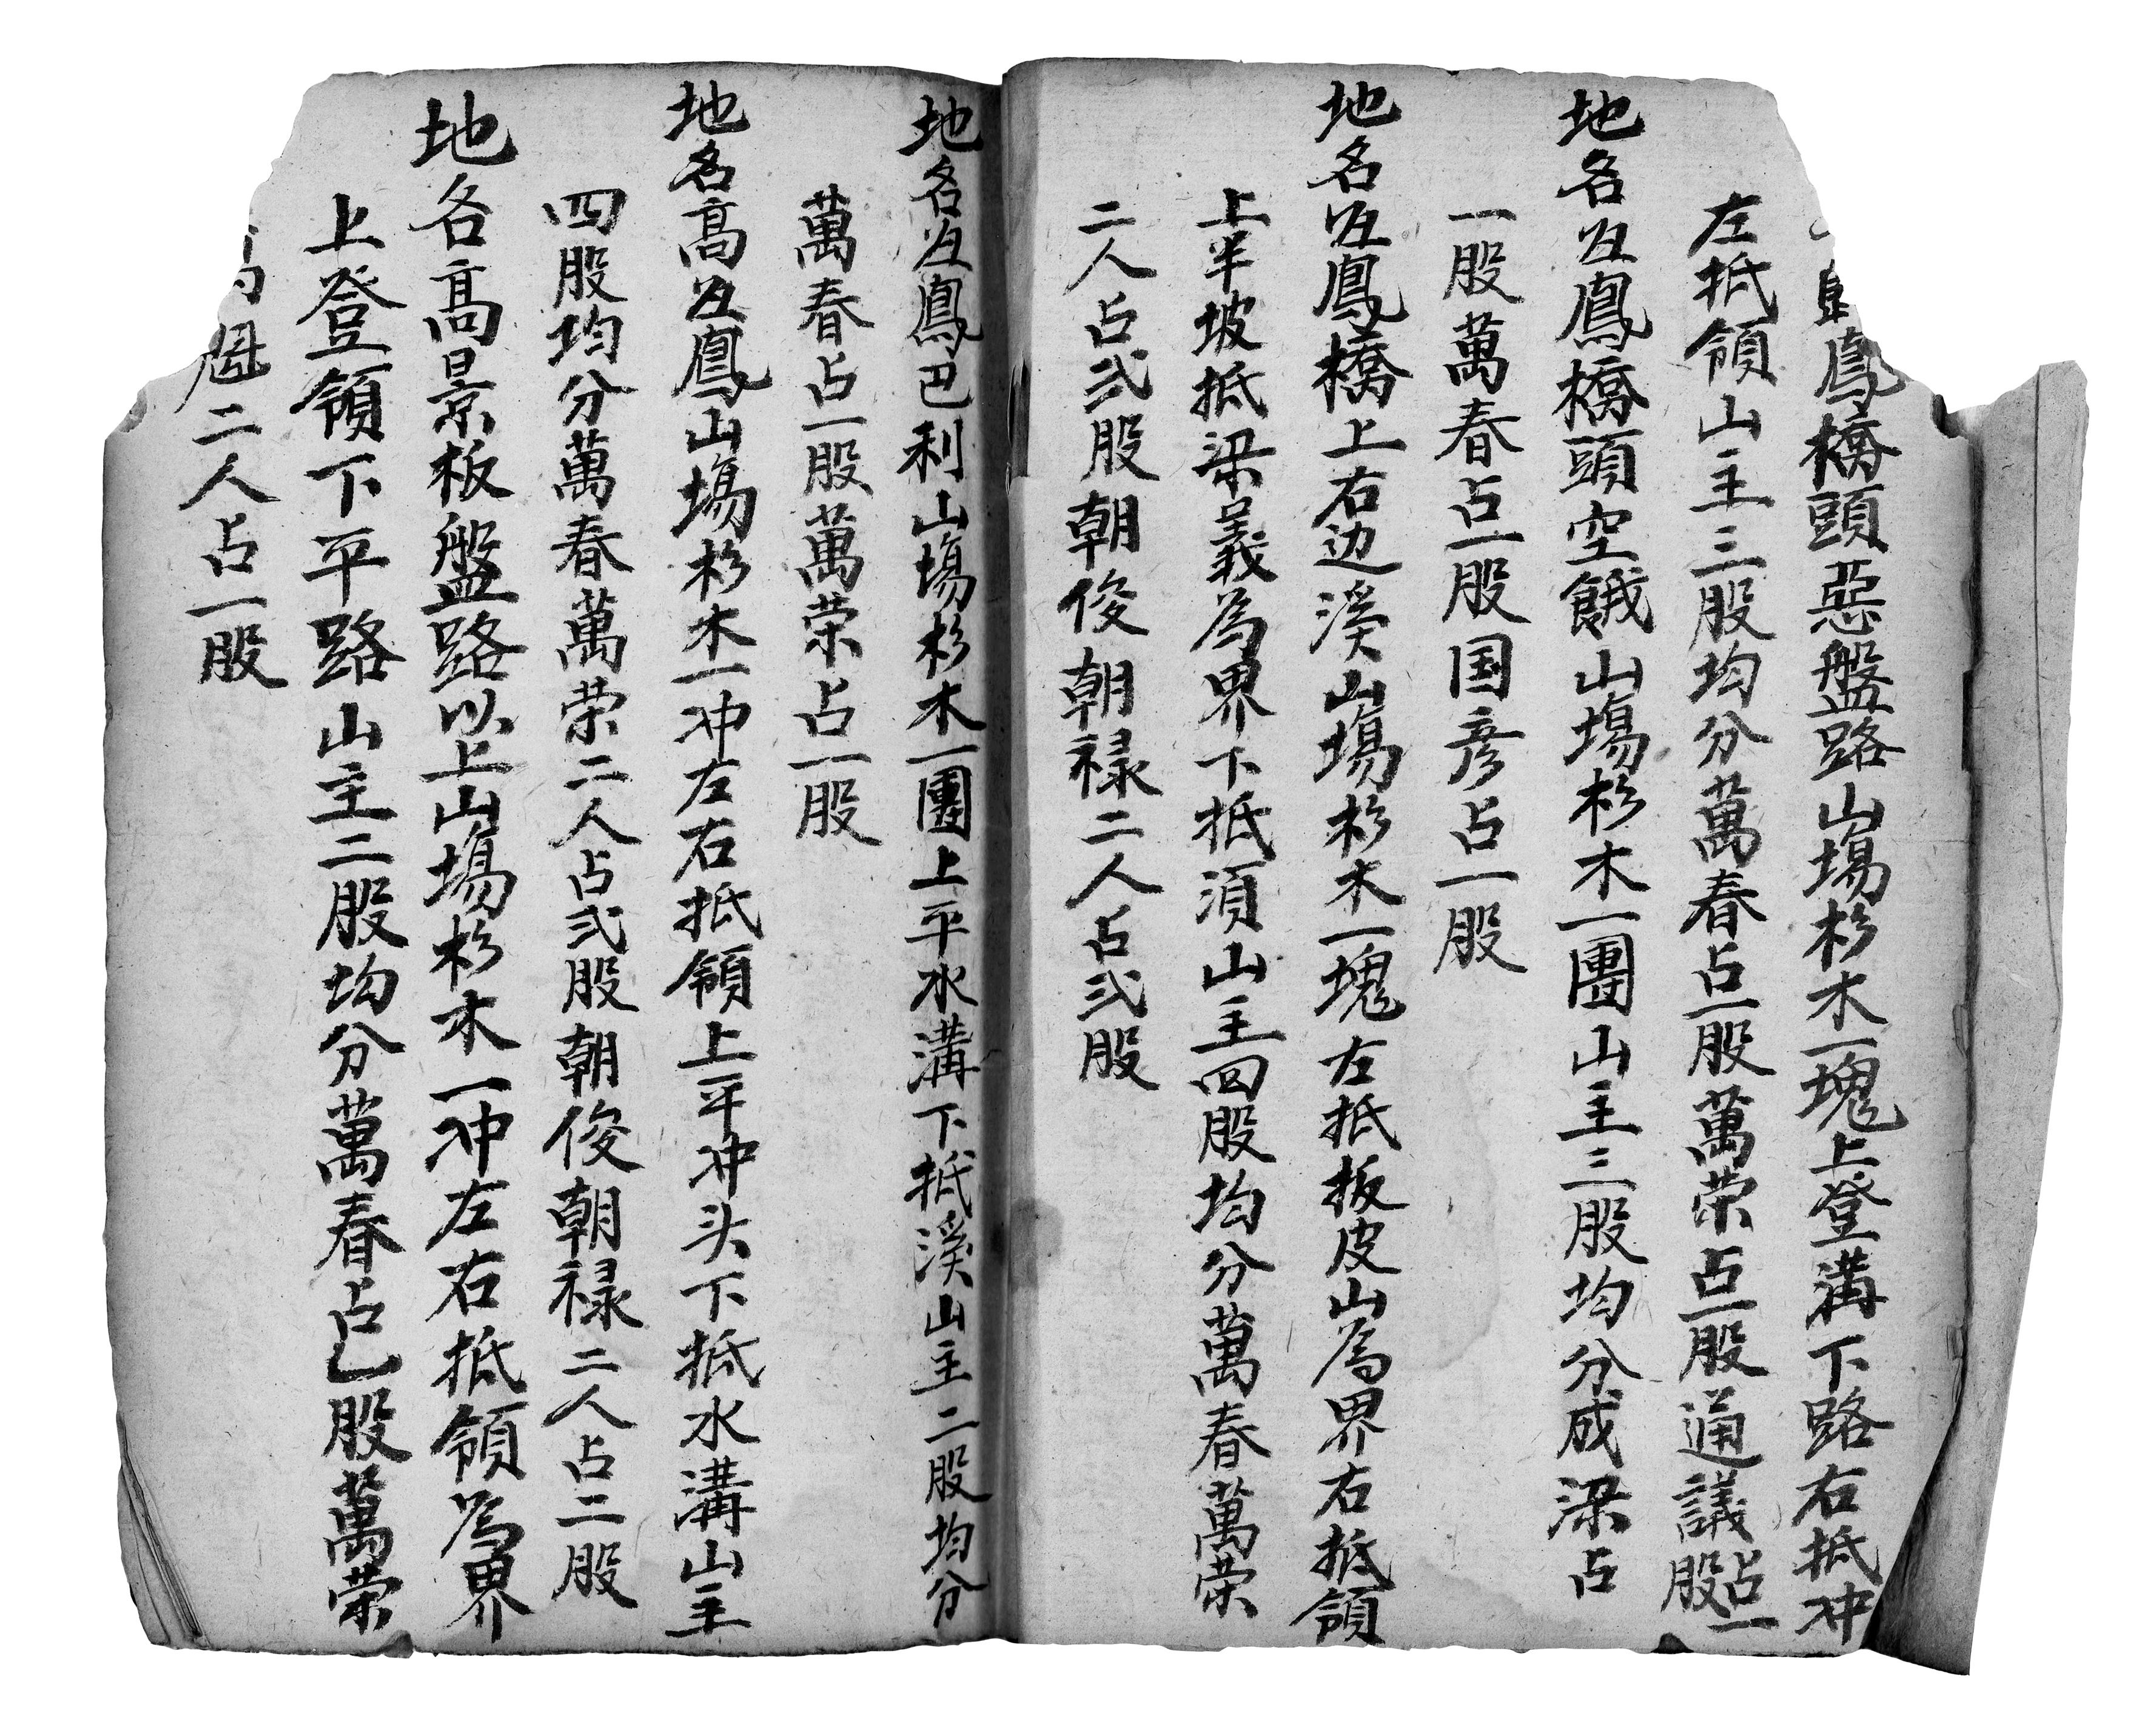 鳳橋頭惡盤路山塲杉木一塊上登溝下路右抵冲
左抵領山主三股均分萬春占一股萬荣占一股通議占一股
地名岜鳳橋頭空餓山塲杉木一團山主三股均分成梁占
一股萬春占一股国彦占一股
地名岜鳳橋上右边溪山塲杉木一塊左抵扳皮山為界右抵領
上半坡抵梁義為界下抵湏山主四股均分萬春萬荣
二人占弍股朝俊朝禄二人占弍股
地名岜鳳巴利山塲杉木一團上平水溝下抵溪山主二股均分
萬春占一股萬荣占一股
地名高岜鳳山塲杉木一冲左右抵領上平冲头下抵水溝山主
四股均分萬春萬荣二人占弍股朝俊朝禄二人占二股
地名高景板盤路以上山塲杉木一冲左右抵領為界
上登領下平路山主二股均分萬春占乙股萬荣
二人占一股